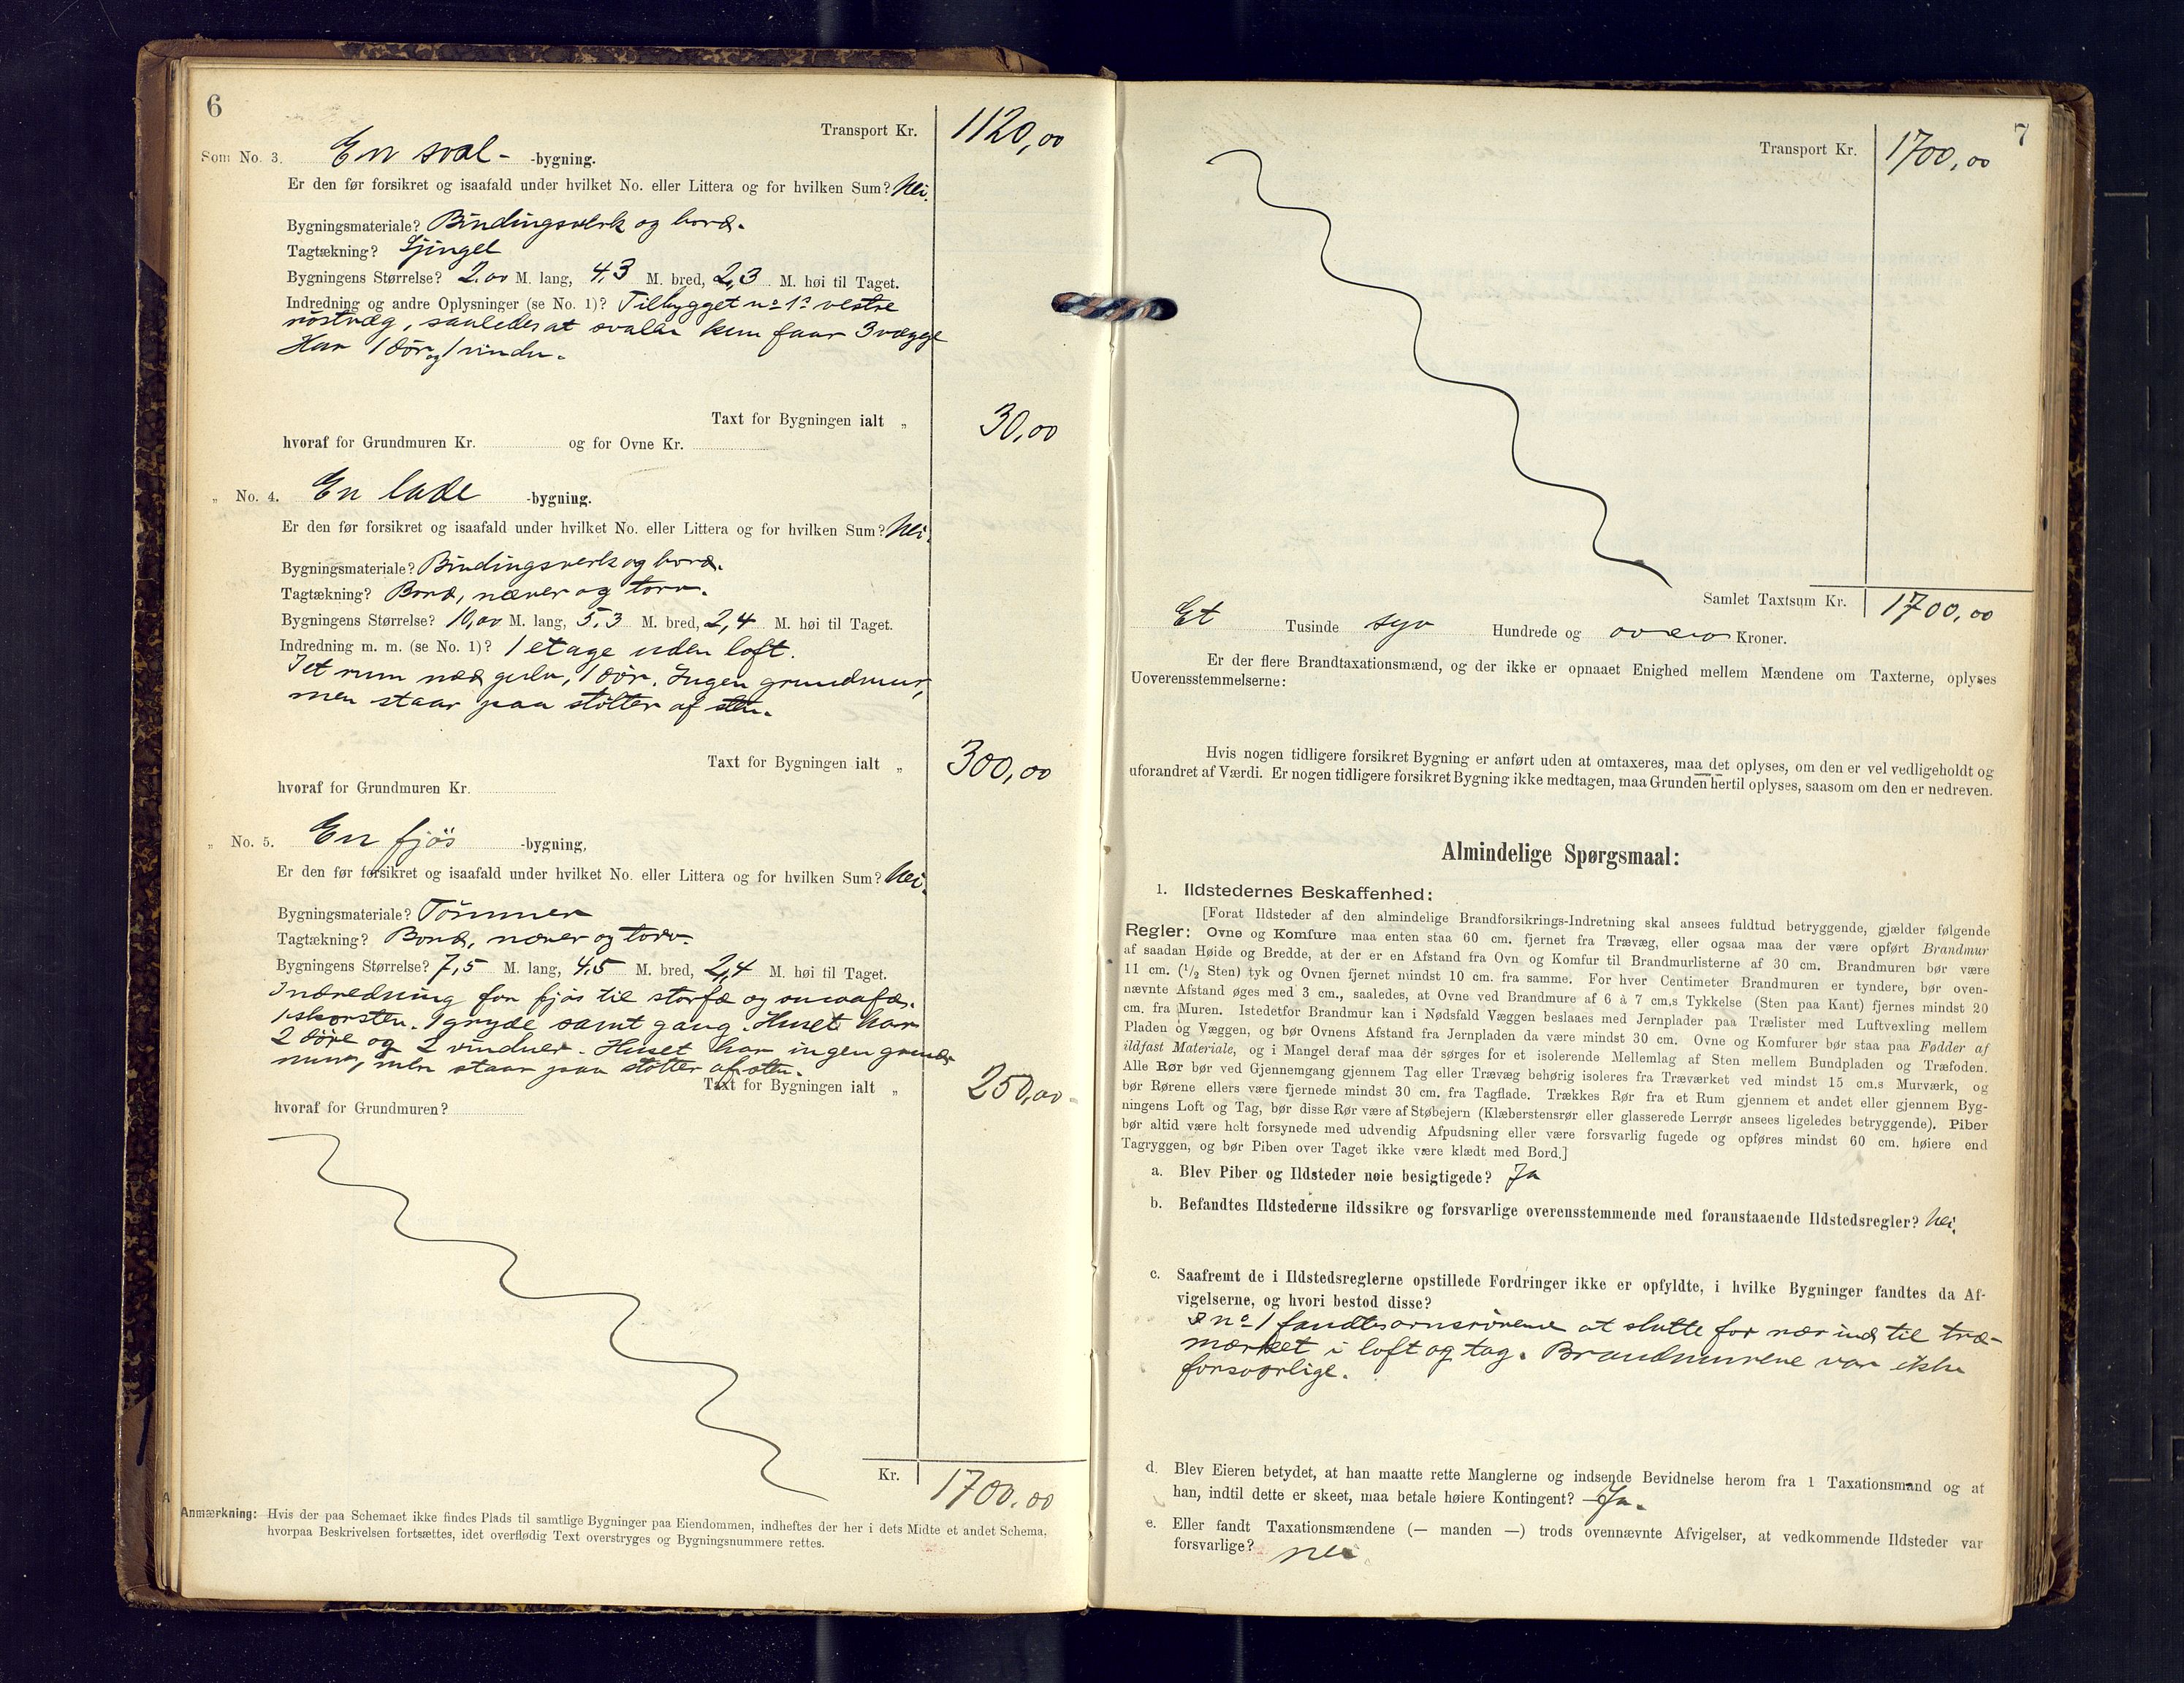 6
Transport Kr. 1120,00
Som No. 3. En sval- -bygning.
Er den før forsikret og isaafald under hvilket No. eller Littera og for hvilken Sum? Nei.
Bygningsmateriale? Bindingsverk og bord.
Tagtækning? Sjingel
Bygningens Størrelse? 2,00 M. lang, 4,3 M. bred, 2,3 M. høi til Taget.
Indredning og andre Oplysninger (se No. 1)? Tilbygget no 1s vestre
röstvæg, saaledes at svalen kun faar 3 vægge
Har 1 dör og 1 vindu.
Taxt for Bygningen ialt „ 30,00
hvoraf for Grundmuren Kr. og for Ovne Kr.
„ No. 4. En lade -bygning.
Er den før forsikret og isaafald under hvilket No. eller Littera og for hvilken Sum? Nei.
Bygningsmateriale? Bindingsverk og bord.
Tagtækning? Bord, næver og torv.
Bygningens Størrelse? 10,00 M. lang, 5,3 M. bred, 2,4 M. høi til Taget.
Indredning m. m. (se No. 1)? 1 etage uden loft.
I et rum med gulv, 1 dör. Ingen grundmur,
men staar paa stötter af sten.
Taxt for Bygningen ialt „ 300,00
hvoraf for Grundmuren Kr.
„ No. 5. En fjös -bygning,
Er den før forsikret og isaafald under hvilket No. eller Littera og for hvilken Sum? Nei.
Bygningsmateriale? Tömmer
Tagtækning? Bord, næver og torv.
Bygningens Størrelse? 7,5 M. lang, 4,5 M. bred, 2,4 M. høi til Taget.
Indredning for fjös til storfæ og smaafæ.
1 skorsten. 1 gryde samt gang. Huset har
2 döre og 2 vinduer. Huset har ingen grund-
mur, men staar paa stötter af sten.
Taxt for Bygningen ialt „ 250,00
hvoraf for Grundmuren?
Kr. 1700,00
Anmærkning: Hvis der paa Schemaet ikke findes Plads til samtlige Bygninger paa Eiendommen, indheftes der her i dets Midte et andet Schema,
hvorpaa Beskrivelsen fortsættes, idet overflødig Text overstryges og Bygningsnummere rettes.
7
Transport Kr. 1700,00
Samlet Taxtsum Kr. 1700,00
Et Tusinde syv Hundrede og Kroner.
Er der flere Brandtaxationsmænd, og der ikke er opnaaet Enighed mellem Mændene om Taxterne, oplyses
Uoverensstemmelserne:
Hvis nogen tidligere forsikret Bygning er anført uden at omtaxeres, maa det oplyses, om den er vel vedligeholdt og
uforandret af Værdi. Er nogen tidligere forsikret Bygning ikke medtagen, maa Grunden hertil oplyses, saasom om den er nedreven.
Almindelige Spørgsmaal:
1. Ildstedernes Beskaffenhed:
[Forat Ildsteder af den almindelige Brandforsikrings-Indretning skal ansees fuldtud betryggende, gjælder følgende
Regler: Ovne og Komfure maa enten staa 60 cm. fjernet fra Trævæg, eller ogsaa maa der være opført Brandmur
af saadan Høide og Bredde, at der er en Afstand fra Ovn og Komfur til Brandmurlisterne af 30 cm. Brandmuren bør være
11 cm. (1/2 Sten) tyk og Ovnen fjernet mindst 10 cm. fra samme. For hver Centimeter Brandmuren er tyndere, bør oven-
nævnte Afstand øges med 3 cm., saaledes, at Ovne ved Brandmure af 6 à 7 cm.s Tykkelse (Sten paa Kant) fjernes mindst 20
cm. fra Muren. Istedetfor Brandmur kan i Nødsfald Væggen beslaaes med Jernplader paa Trælister med Luftvexling mellem
Pladen og Væggen, og bør Ovnens Afstand fra Jernpladen da være mindst 30 cm. Ovne og Komfurer bør staa paa Fødder af
ildfast Materiale, og i Mangel deraf maa der sørges for et isolerende Mellemlag af Sten mellem Bundpladen og Træfoden.
Alle Rør bør ved Gjennemgang gjennem Tag eller Trævæg behørig isoleres fra Træværket ved mindst 15 cm.s Murværk, og
bør Rørene ellers være fjernede mindst 30 cm. fra Tagflade. Trækkes Rør fra et Rum gjennem et andet eller gjennem Byg-
ningens Loft og Tag, bør disse Rør være af Støbejern (Klæberstensrør eller glasserede Lerrør ansees ligeledes betryggende). Piber
bør altid være helt forsynede med udvendig Afpudsning eller være forsvarlig fugede og opføres mindst 60 cm. høiere end
Tagryggen, og bør Piben over Taget ikke være klædt med Bord.]
a. Blev Piber og Ildsteder nøie besigtigede? Ja
b. Befandtes Ildstederne ildssikre og forsvarlige overensstemmende med foranstaaende Ildstedsregler? Nei.
c. Saafremt de i Ildstedsreglerne opstillede Fordringer ikke er opfyldte, i hvilke Bygninger fandtes da Af-
vigelserne, og hvori bestod disse?
I no 1 fandtes ovnsrörene at slutte for nær ind til træ-
mærket i loft og tag. Brandmurene var ikke
forsvarlige.
d. Blev Eieren betydet, at han maatte rette Manglerne og indsende Bevidnelse herom fra 1 Taxationsmand og at
han, indtil dette er skeet, maa betale høiere Kontingent? Ja.
e. Eller fandt Taxationsmændene (— manden —) trods ovennævnte Afvigelser, at vedkommende Ildsteder var
forsvarlige? nei